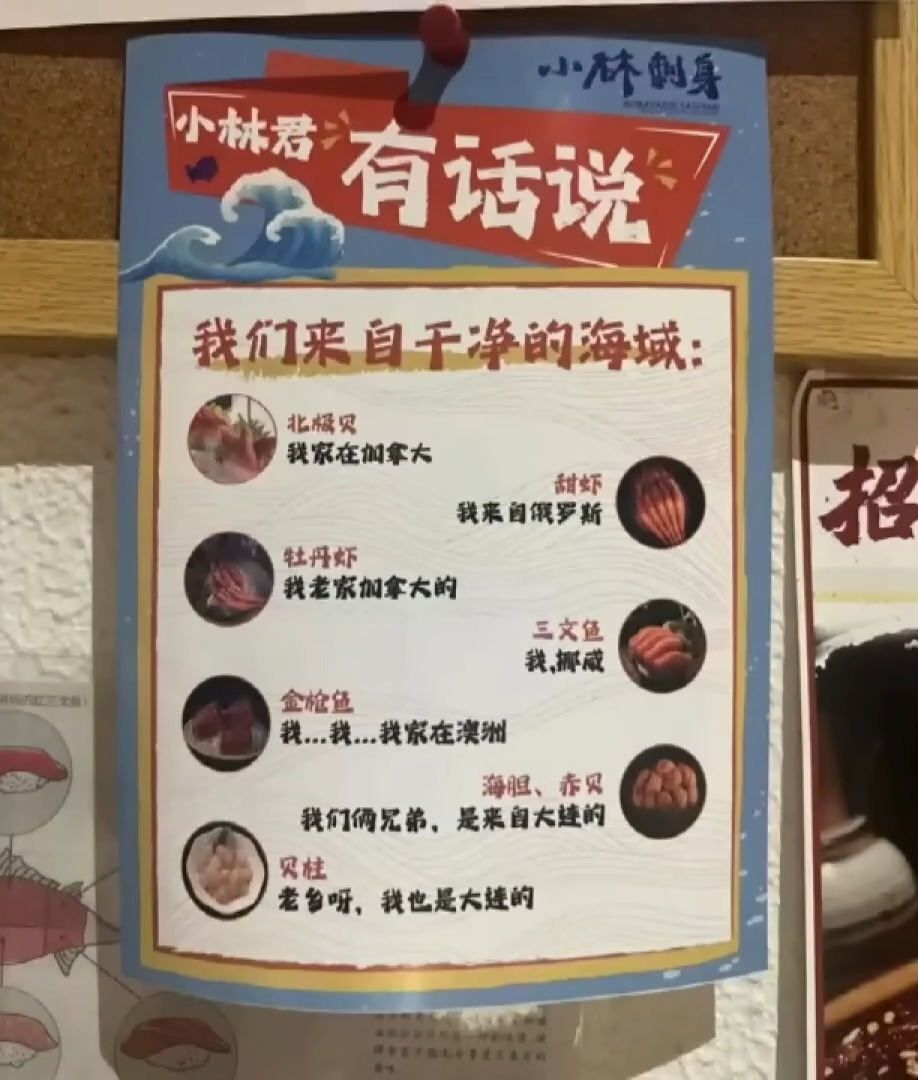 小林刺身
小林君
有话说
我们来自干净的海域:
北极贝
我家在加拿大
甜虾
我来自俄罗斯
牡丹虾
我老家加拿大的
三文鱼
我,挪威
金枪鱼
我...我...我家在澳洲
海胆、赤贝
我们俩兄弟, 是来自大连的
贝柱
老乡呀, 我也是大连的
招